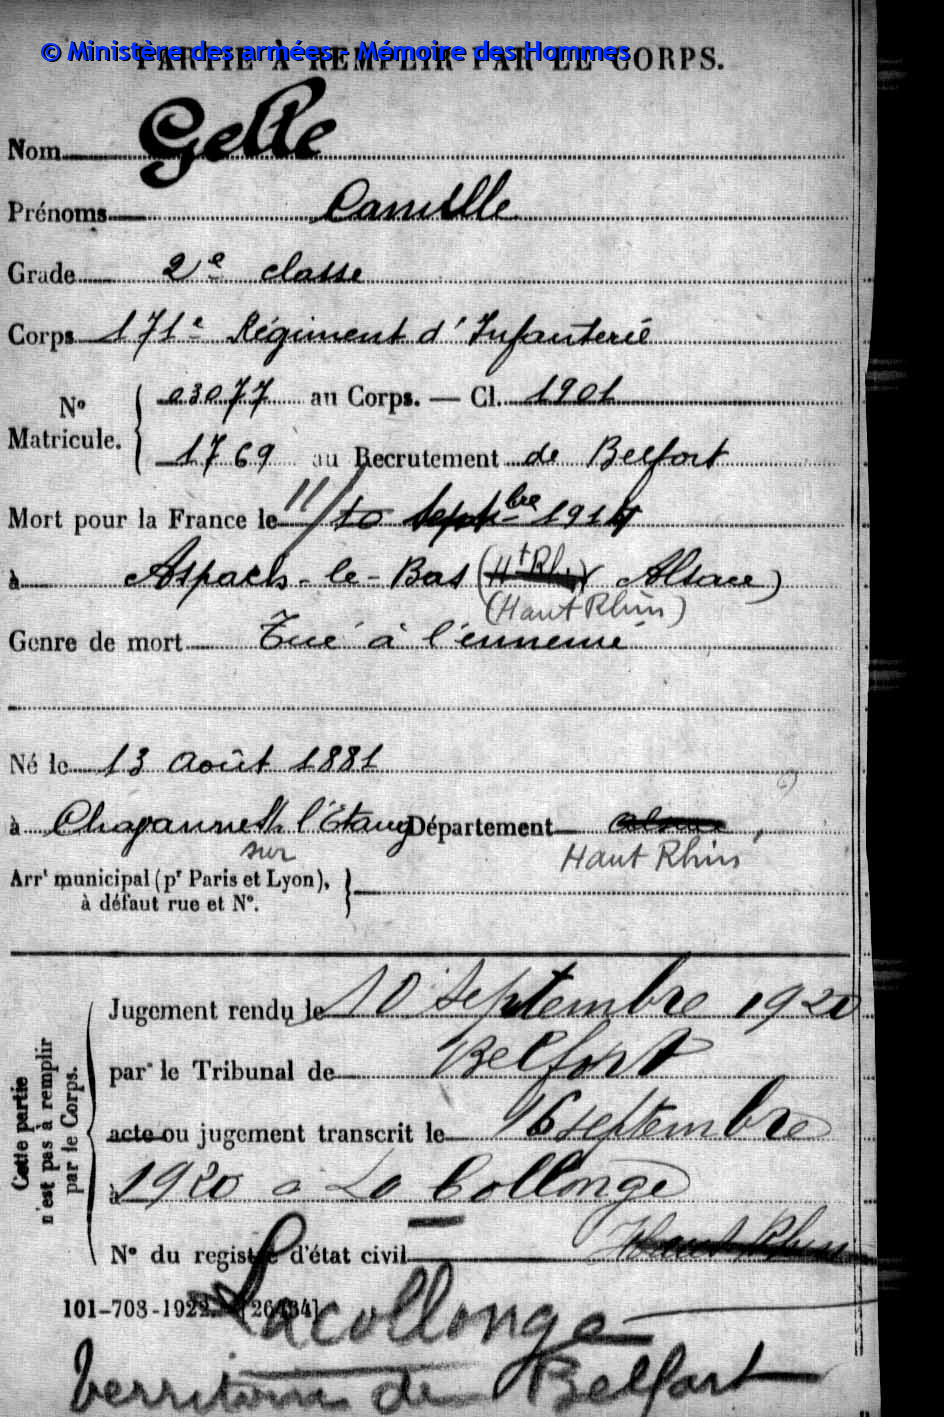 © Ministère des armées - Mémoire des Hommes
PARTIE À REMPLIR PAR LE CORPS.
Nom Gelle
Prénoms Camille
Grade 2e classe
Corps 171e Régiment d'Infanterie
No Matricule. 03077 au Corps. — Cl. 1901
1769 au Recrutement de Belfort
Mort pour la France le 11/10 Septbre 1914
à Aspach-le-Bas (Ht Rhin) (Alsace)
(Haut Rhin)
Genre de mort Tué à l'ennemi
Né le 13 Août 1881
à Chavannes l'Etang Département Alsace
sur Haut Rhin
Arrt municipal (pr Paris et Lyon),
à défaut rue et No.
Cette partie
n'est pas à remplir
par le Corps.
Jugement rendu le 10 Septembre 1920
par le Tribunal de Belfort
acte ou jugement transcrit le 16 septembre
à 1920 a La Collonge
No du registre d'état civil Haut Rhin
101-708-1922. [26434]
Lacollonge
Territoire de Belfort